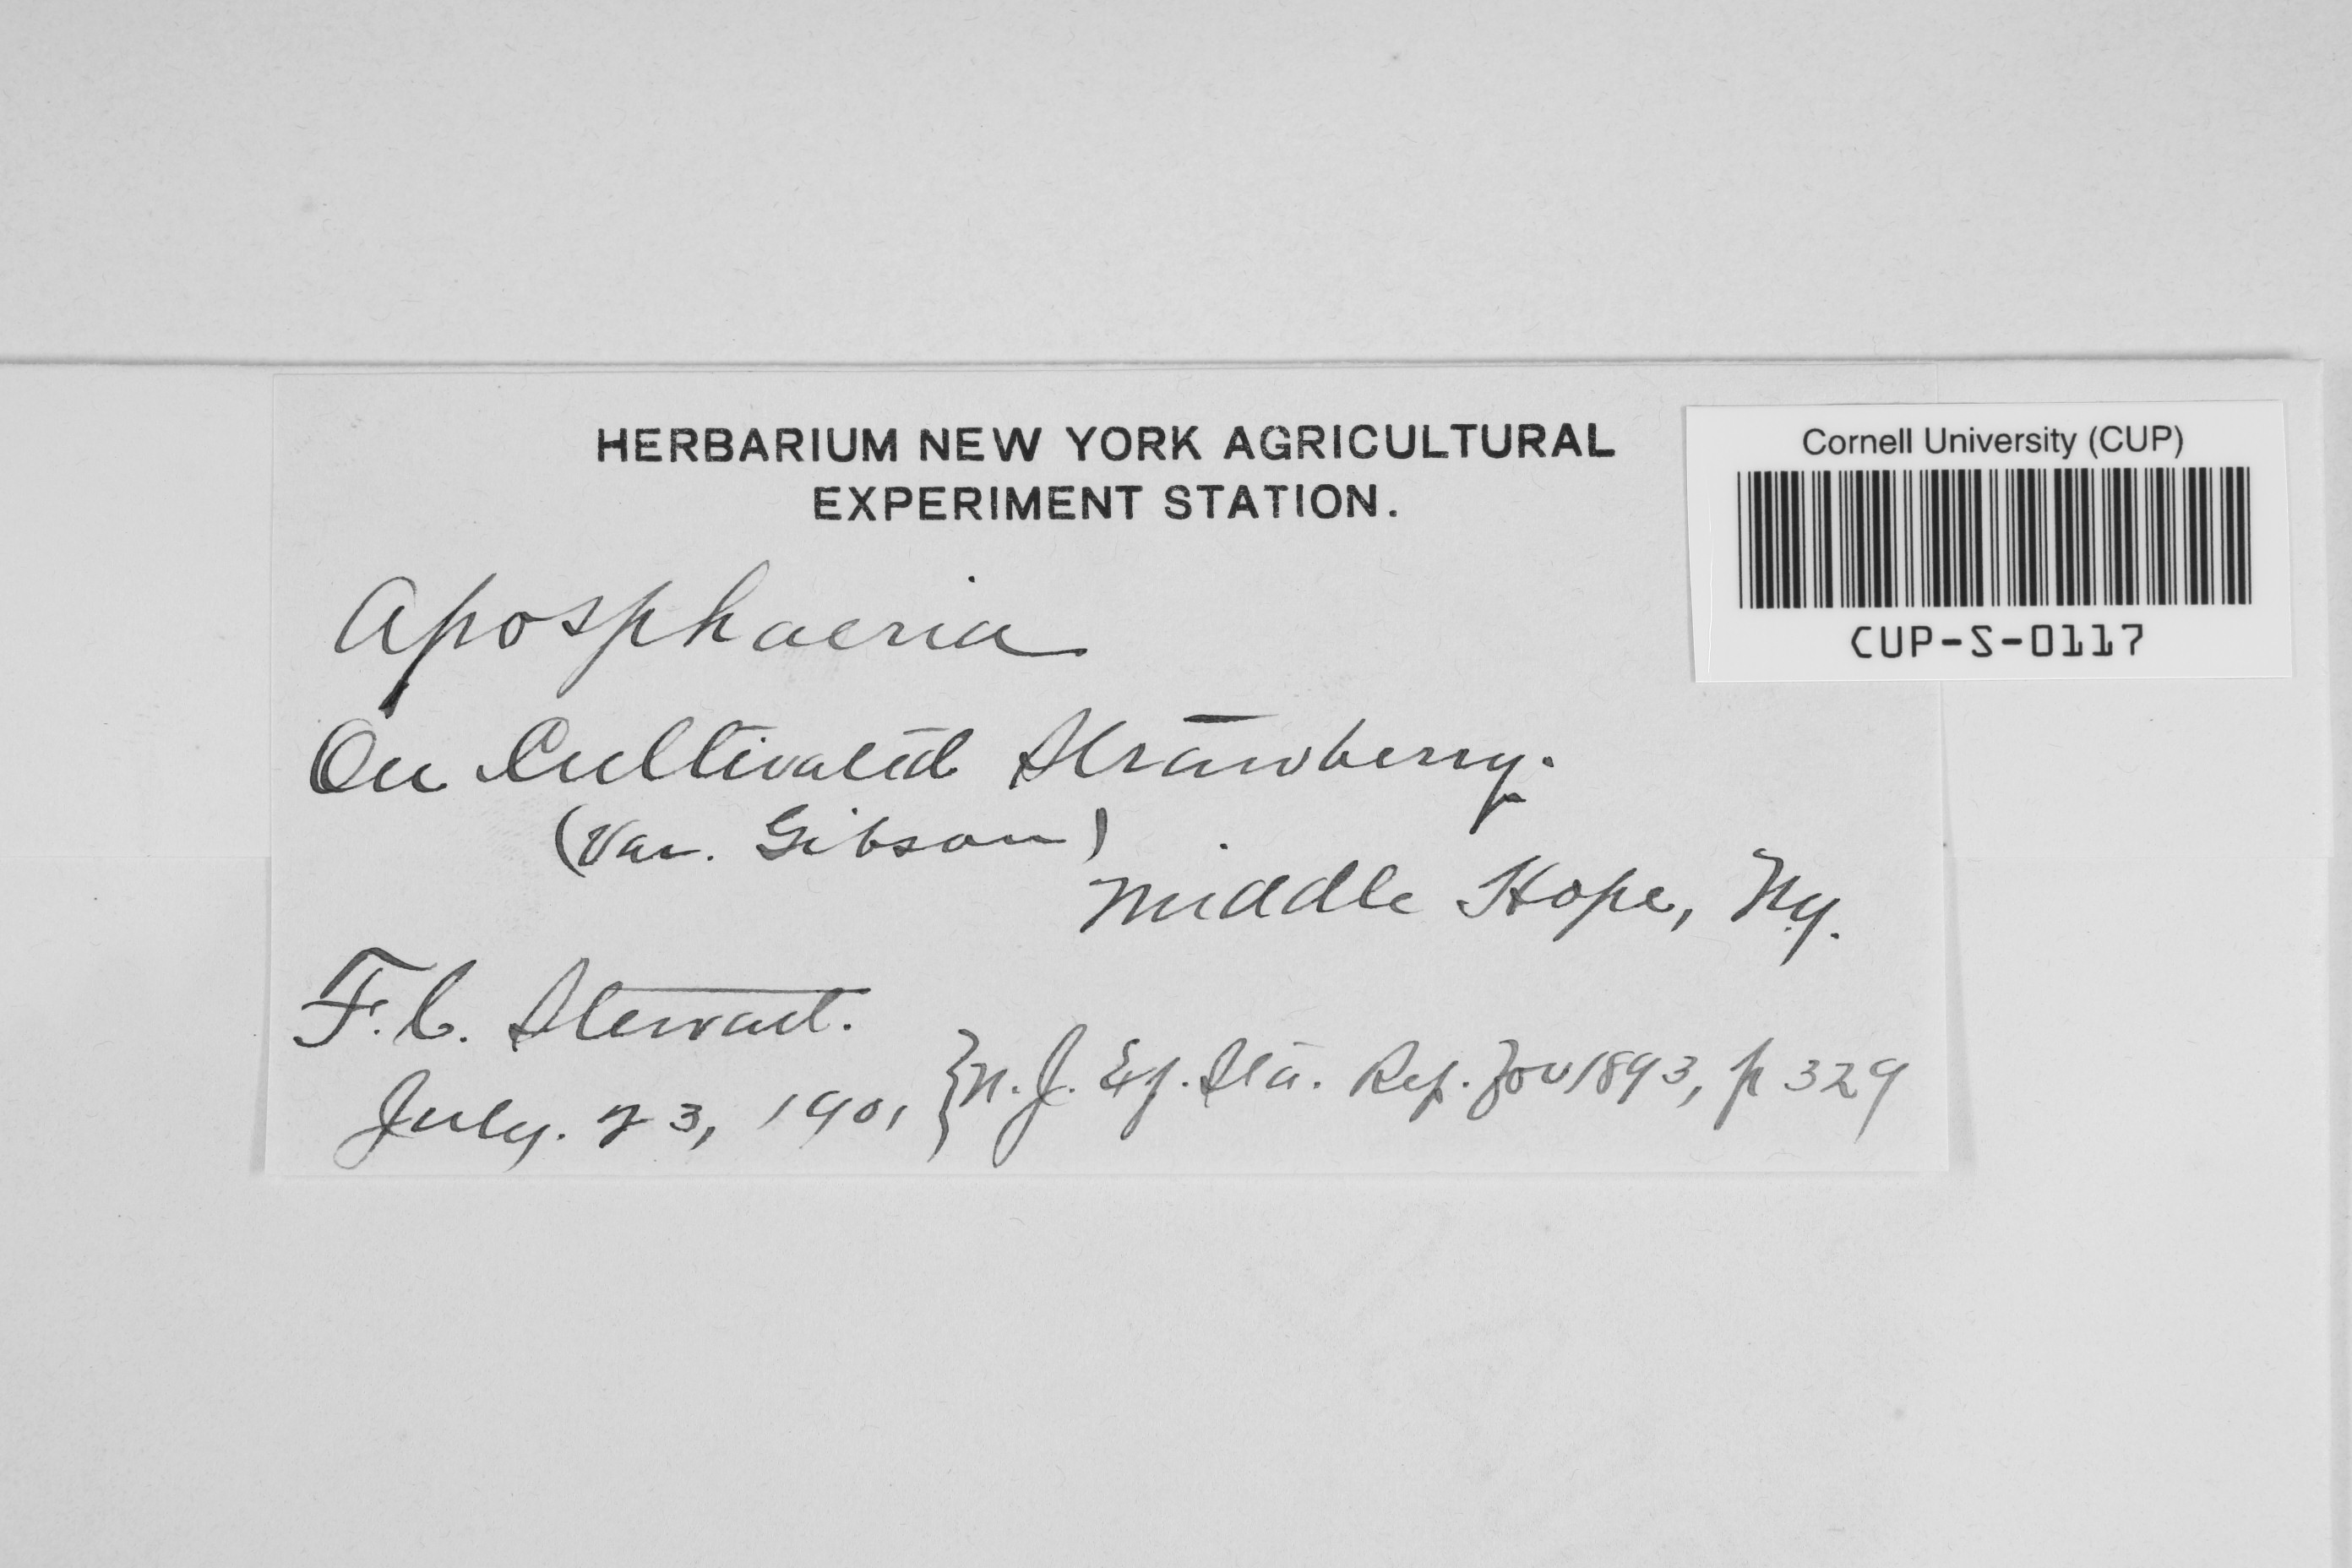 HERBARIUM NEW YORK AGRICULTURAL
EXPERIMENT STATION.
Cornell University (CUP)
CUP-S-0117
Aposphaeria
On Cultivated Strawberry.
(Var. Gibson)
Middle Hope, N.y.
F. C. Stewart.
July. 23, 1901
}N. J. Ex. Sta. Rep. for 1893, p 329